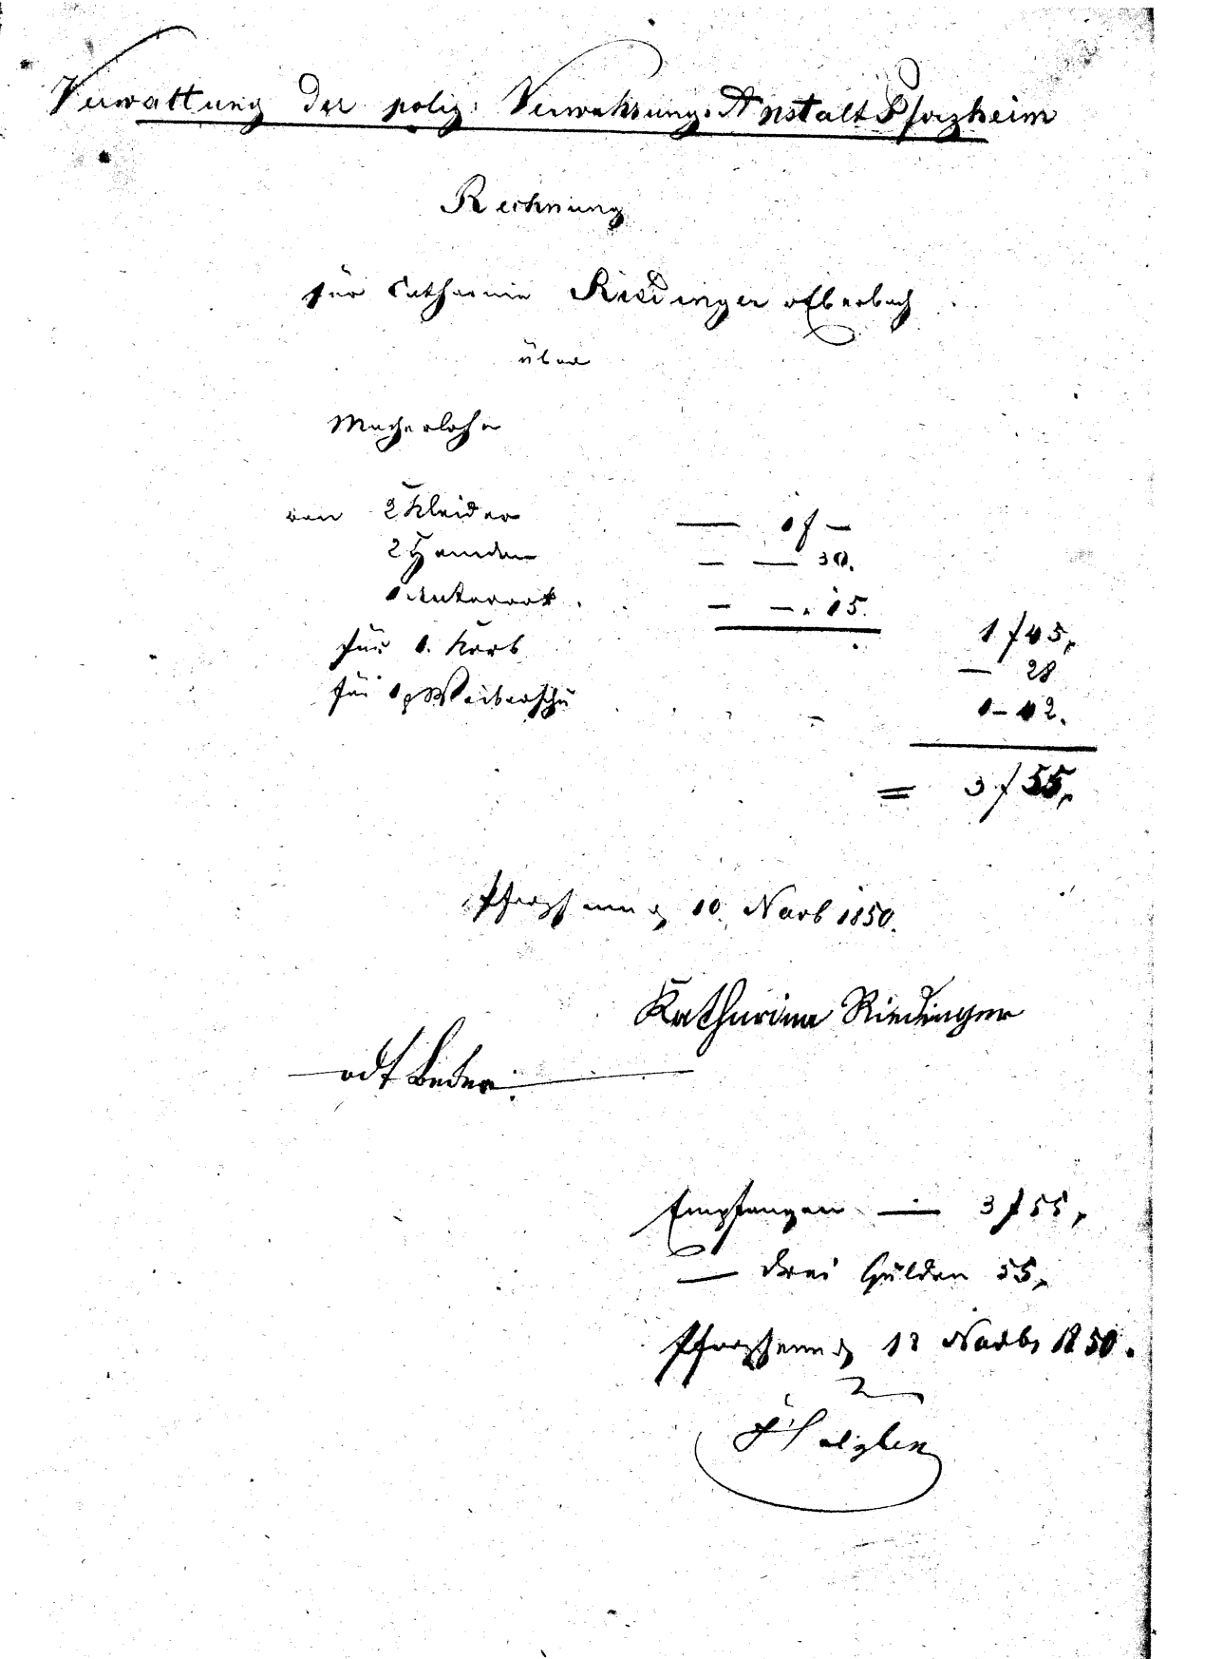 Verwaltung der poliz: Verwahrungs-Anstalt Pforzheim
Rechnung
für Catharine Riedinger v Eberbach
über
Macherlohn
von 2 Kleider — 1 f —
2 Hemden — — 30.
1 Unterrock. — — 15.
1 f 45,
für 1. Korb — 28
für 1 p Weiberschu 1 — 42.
= 3 f 55,
Pforzheim d 10. Novb 1850.
Katharina Riedinger
Empfangen — 3 f 55,
— drei Gulden 55,
Pforzheim d 12 Novbr 1850.